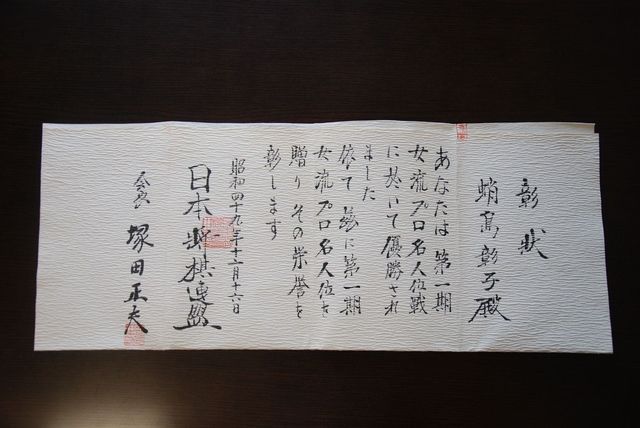 彰状
蛸島彰子殿
あなたは第一期
女流プロ名人位戦
に於いて優勝され
ました
依て茲に第一期
女流プロ名人位を
贈りその栄誉を
彰します
昭和四十九年十一月十六日
日本将棋連盟
会長 塚田正夫